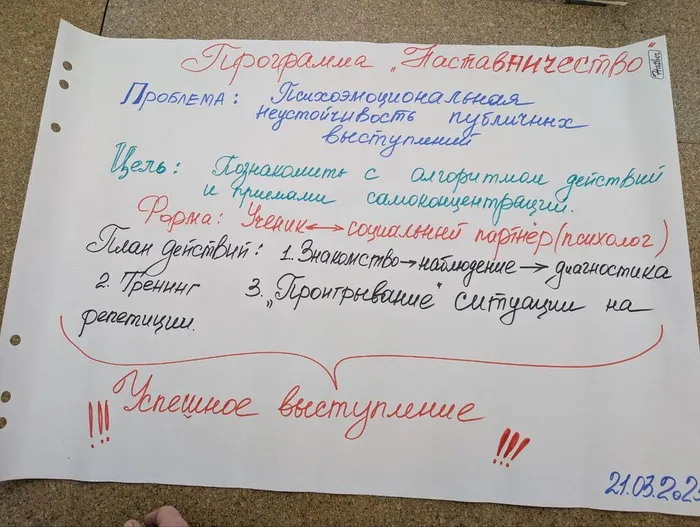 Программа „Наставничество"
Проблема: Психоэмоциональная
неустойчивость публичных
выступлений
Цель: Познакомить с алгоритмом действий
и приемами самоконцентрации.
Форма: Ученик ↔ социальный партнёр (психолог)
План действий: 1. Знакомство → наблюдение → диагностика
2. Тренинг 3. „Проигрывание" ситуации на
репетиции.
Успешное выступление
!!! !!!
21.03.202